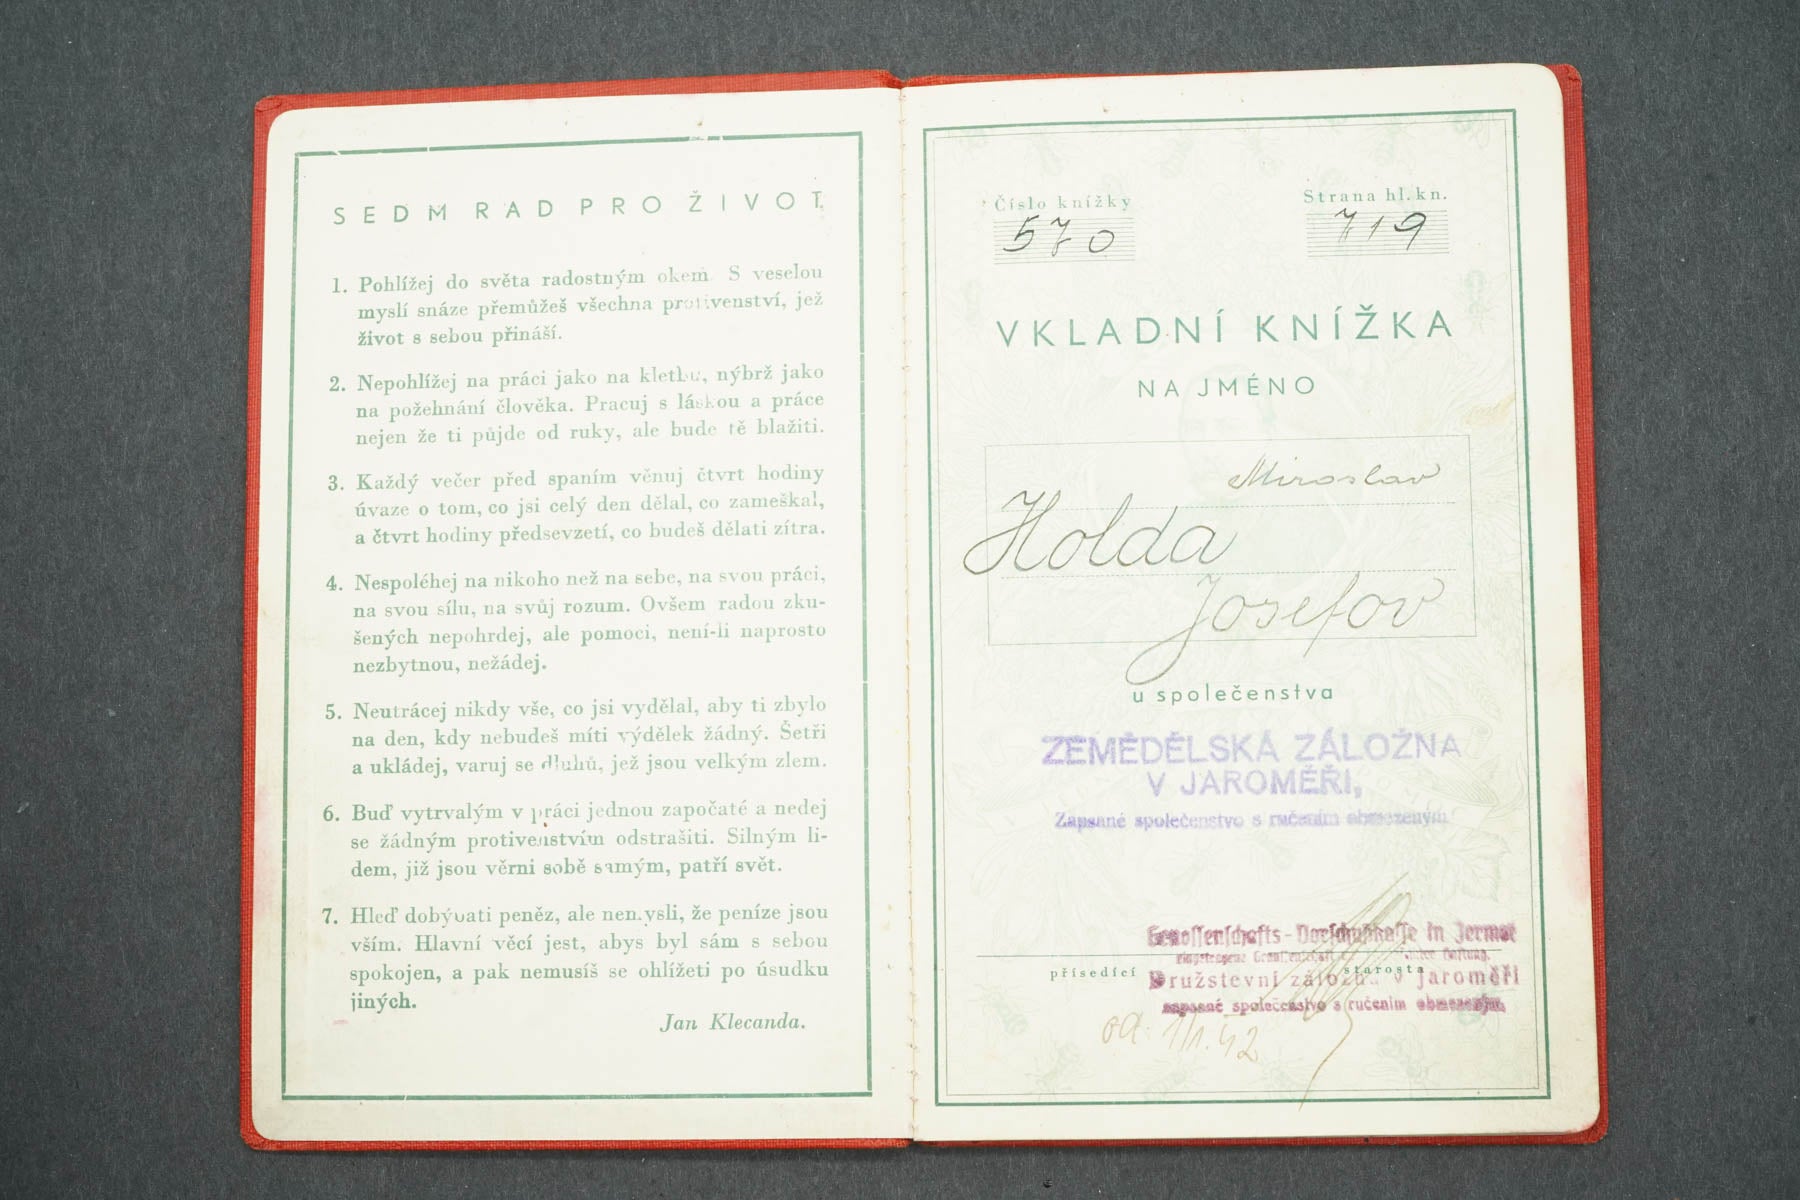 SEDM RAD PRO ŽIVOT
1. Pohlížej do světa radostným okem. S veselou
myslí snáze přemůžeš všechna protivenství, jež
život s sebou přináší.
2. Nepohlížej na práci jako na kletbu, nýbrž jako
na požehnání člověka. Pracuj s láskou a práce
nejen že ti půjde od ruky, ale bude tě blažiti.
3. Každý večer před spaním věnuj čtvrt hodiny
úvaze o tom, co jsi celý den dělal, co zameškal,
a čtvrt hodiny předsevzetí, co budeš dělati zítra.
4. Nespoléhej na nikoho než na sebe, na svou práci,
na svou sílu, na svůj rozum. Ovšem radou zku-
šených nepohrdej, ale pomoci, není-li naprosto
nezbytnou, nežádej.
5. Neutrácej nikdy vše, co jsi vydělal, aby ti zbylo
na den, kdy nebudeš míti výdělek žádný. Šetři
a ukládej, varuj se dluhů, jež jsou velkým zlem.
6. Buď vytrvalým v práci jednou započaté a nedej
se žádným protivenstvím odstrašiti. Silným li-
dem, již jsou věrni sobě samým, patří svět.
7. Hleď dobývati peněz, ale nemysli, že peníze jsou
vším. Hlavní věcí jest, abys byl sám s sebou
spokojen, a pak nemusíš se ohlížeti po úsudku
jiných.
Jan Klecanda.
Číslo knížky
570
Strana hl. kn.
719
VKLADNÍ KNÍŽKA
NA JMÉNO
Miroslav
Holda
Josefov
u společenstva
ZEMĚDĚLSKÁ ZÁLOŽNA
V JAROMĚŘI,
Zapsané společenstvo s ručením obmezeným
Genossenschafts-Vorschußkasse in Jermer
eingetragene Genossenschaft Haftung.
přísedící
starosta
Družstevní záložna v Jaroměři
zapsané společenstvo s ručením obmezeným
od 1/1. 42